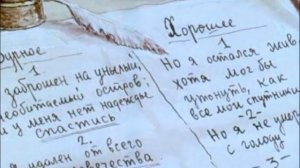 Дурное
1.
заброшен на унылый,
необитаемый остров;
и у меня нет надежды
спастись
2.
удален от всего
человечества
Хорошее
1
Но я остался жив
хотя мог бы
утонуть, как
все мои спутники
-2-
Но я не умер
с голоду
3